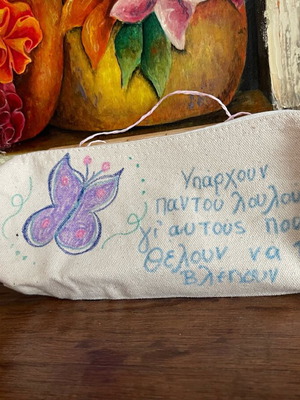 Υπαρχουν
παντου λουλου
γι αυτους που
θέλουν να
βλεπουν